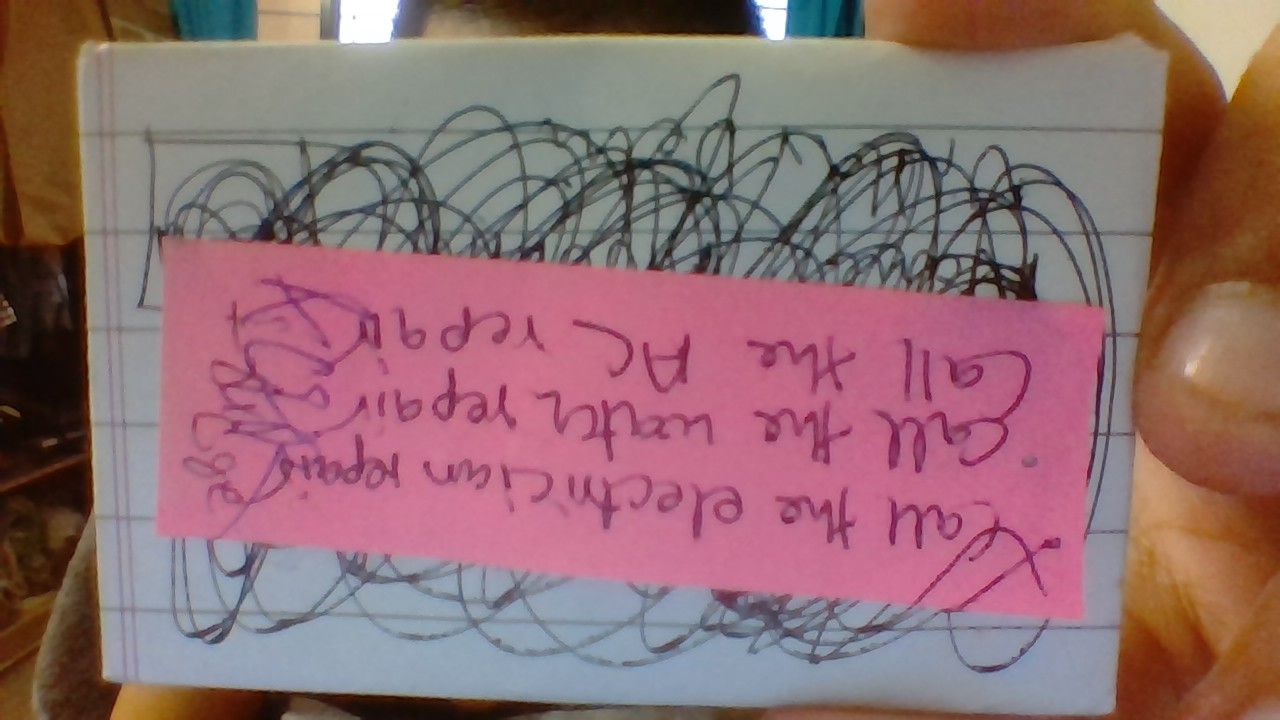 • Call the electrician repair
• Call the water repair
Call the AC repair